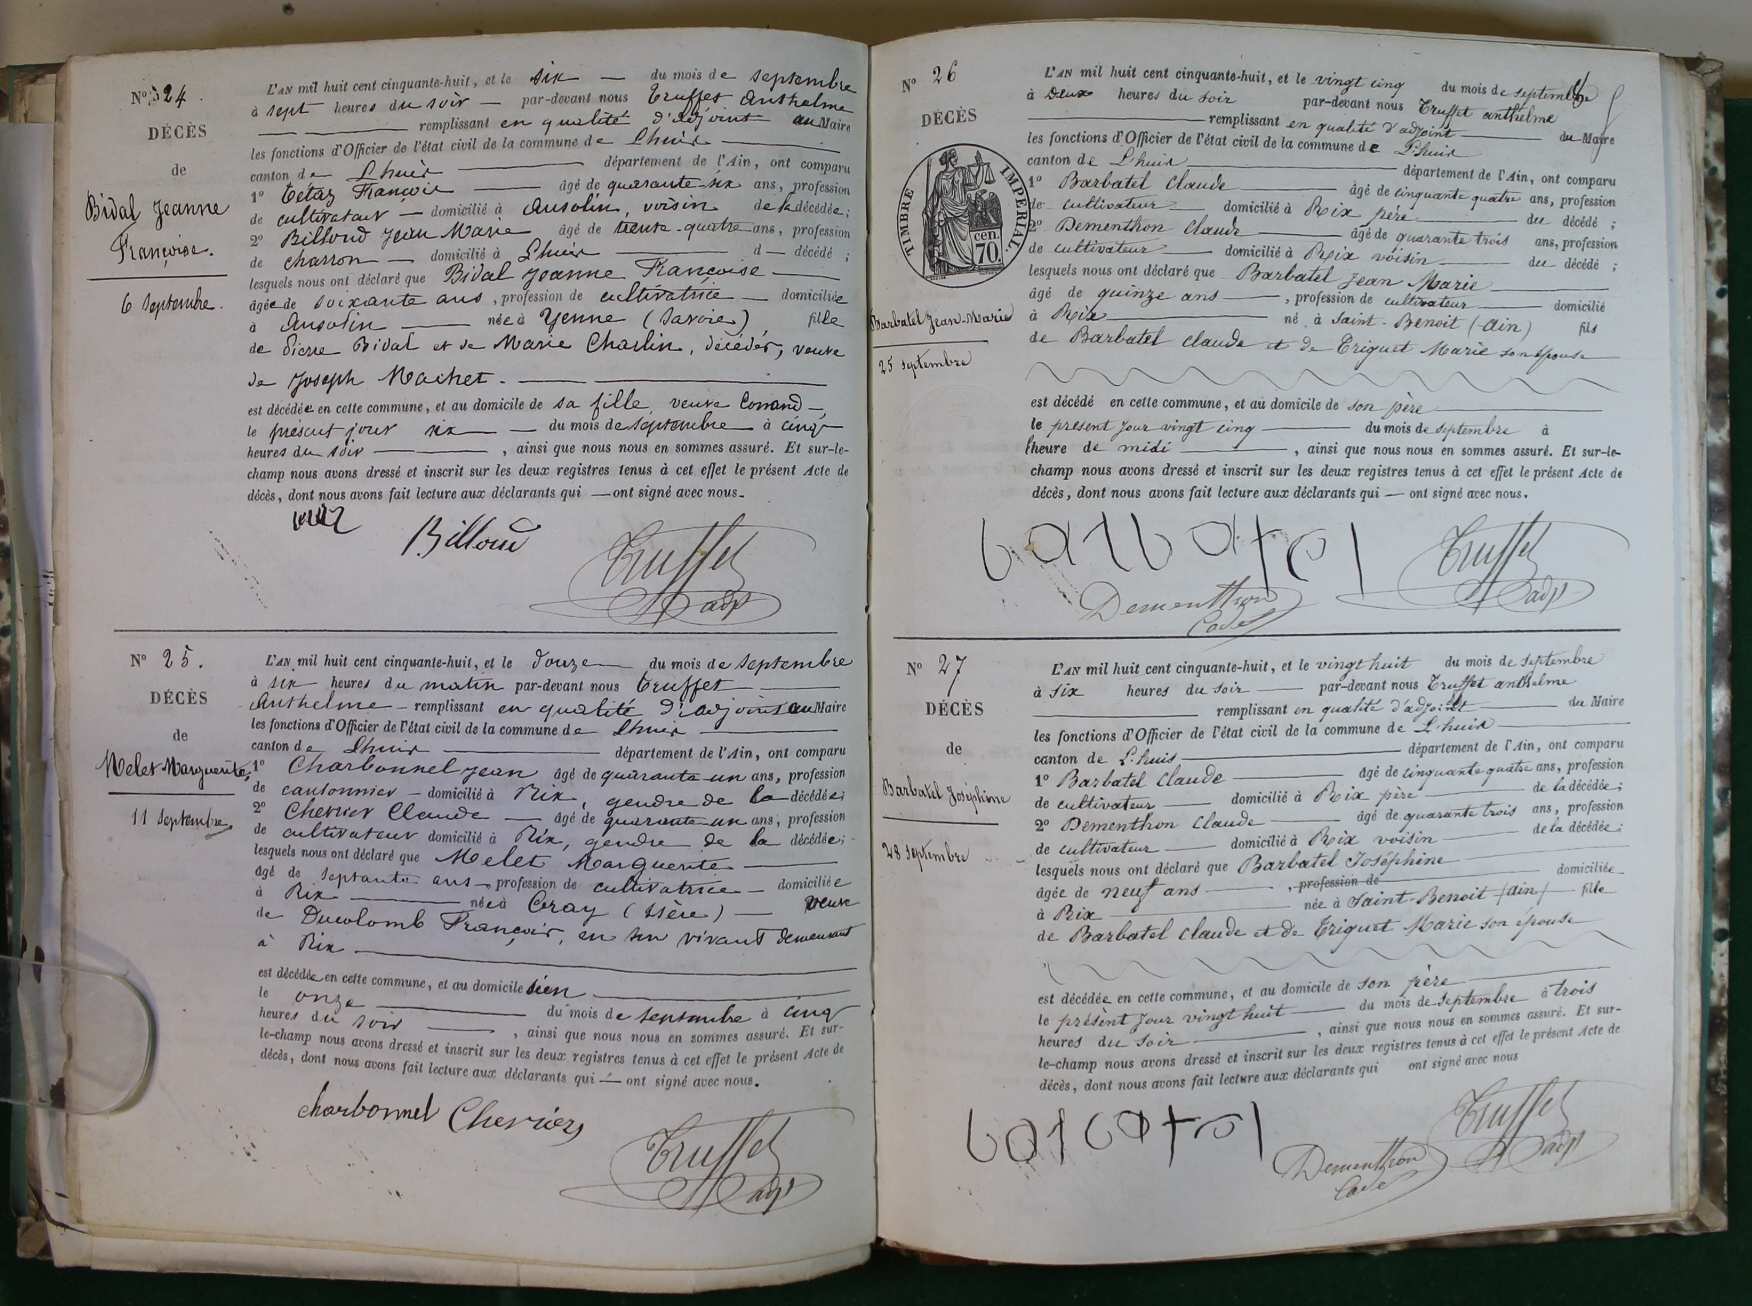 N° 24.
DÉCÈS
de
Bidal Jeanne
Françoise.
6 septembre.
L'AN mil huit cent cinquante-huit, et le six — du mois de septembre
à sept heures du soir — par-devant nous Truffet Anthelme
remplissant en qualité d'adjoint au Maire
les fonctions d'Officier de l'état civil de la commune de Lhuis
canton de Lhuis département de l'Ain, ont comparu
1° Tetaz François âgé de quarante-six ans, profession
de cultivateur — domicilié à Ansolin, voisin de la décédée;
2° Billoud Jean Marie âgé de trente-quatre ans, profession
de charron — domicilié à Lhuis d — décédé ;
lesquels nous ont déclaré que Bidal Jeanne Françoise
âgée de soixante ans, profession de cultivatrice — domiciliée
à Ansolin née à Yenne (Savoie) fille
de Pierre Bidal et de Marie Charlin, décédés, veuve
de Joseph Machet.
est décédée en cette commune, et au domicile de sa fille, veuve Conand
le présent jour six — du mois de septembre à cinq
heures du soir , ainsi que nous nous en sommes assuré. Et sur-le-
champ nous avons dressé et inscrit sur les deux registres tenus à cet effet le présent Acte de
décès, dont nous avons fait lecture aux déclarants qui — ont signé avec nous.
Billoud
Truffet
adjt
N° 25.
DÉCÈS
de
Melet Marguerite,
11 septembre
L'AN mil huit cent cinquante-huit, et le douze du mois de septembre
à six heures du matin par-devant nous Truffet
Anthelme — remplissant en qualité d'adjoint au Maire
les fonctions d'Officier de l'état civil de la commune de Lhuis
canton de Lhuis département de l'Ain, ont comparu
1° Charbonnel Jean âgé de quarante-un ans, profession
de cantonnier — domicilié à Rix, gendre de la décédée;
2° Chevrier Claude — âgé de quarante-un ans, profession
de cultivateur domicilié à Rix, gendre de la décédée;
lesquels nous ont déclaré que Melet Marguerite
âgé de septante ans, profession de cultivatrice — domiciliée
à Rix née à (Isère) — veuve
de Ducolomb François, en son vivant demeurant
à Rix
est décédée en cette commune, et au domicile sien
le onze du mois de septembre à cinq
heures du soir , ainsi que nous nous en sommes assuré. Et sur-
le-champ nous avons dressé et inscrit sur les deux registres tenus à cet effet le présent Acte de
décès, dont nous avons fait lecture aux déclarants qui — ont signé avec nous.
charbonnel Chevrier
Truffet
adjt
N° 26
DÉCÈS
TIMBRE IMPÉRIAL.
cen.
70.
Barbatel Jean-Marie
25 septembre
L'AN mil huit cent cinquante-huit, et le vingt cinq du mois de septembre
à Deux heures du soir par-devant nous Truffet anthelme
remplissant en qualité d'adjoint du Maire
les fonctions d'Officier de l'état civil de la commune de Lhuis
canton de Lhuis département de l'Ain, ont comparu
1° Barbatel Claude âgé de cinquante quatre ans, profession
de cultivateur domicilié à Rix père du décédé ;
2° Dementhon Claude âgé de quarante trois ans, profession
de cultivateur domicilié à Rix voisin du décédé ;
lesquels nous ont déclaré que Barbatel Jean Marie
âgé de quinze ans , profession de cultivateur domicilié
à Rix né à Saint-Benoit (Ain) fils
de Barbatel claude et de Triguet Marie son épouse
est décédé en cette commune, et au domicile de son père
le présent jour vingt cinq du mois de septembre à
l'heure de midi , ainsi que nous nous en sommes assuré. Et sur-le-
champ nous avons dressé et inscrit sur les deux registres tenus à cet effet le présent Acte de
décès, dont nous avons fait lecture aux déclarants qui — ont signé avec nous.
barbatel
Truffet
adjt
Dementhon
N° 27
DÉCÈS
de
Barbatel Joséphine
28 septembre
L'AN mil huit cent cinquante-huit, et le vingt huit du mois de septembre
à six heures du soir — par-devant nous Truffet anthelme
remplissant en qualité d'adjoint du Maire
les fonctions d'Officier de l'état civil de la commune de Lhuis
canton de Lhuis département de l'Ain, ont comparu
1° Barbatel Claude âgé de cinquante quatre ans, profession
de cultivateur domicilié à Rix père de la décédée;
2° Dementhon Claude âgé de quarante trois ans, profession
de cultivateur domicilié à Rix voisin de la décédée;
lesquels nous ont déclaré que Barbatel Joséphine
âgée de neuf ans , profession de domiciliée
à Rix née à Saint-Benoit (ain) fille
de Barbatel claude et de Triguet Marie son épouse
est décédée en cette commune, et au domicile de son père
le présent jour vingt huit du mois de septembre à trois
heures du soir , ainsi que nous nous en sommes assuré. Et sur-
le-champ nous avons dressé et inscrit sur les deux registres tenus à cet effet le présent Acte de
décès, dont nous avons fait lecture aux déclarants qui ont signé avec nous
barbatel
Truffet
adjt
Dementhon